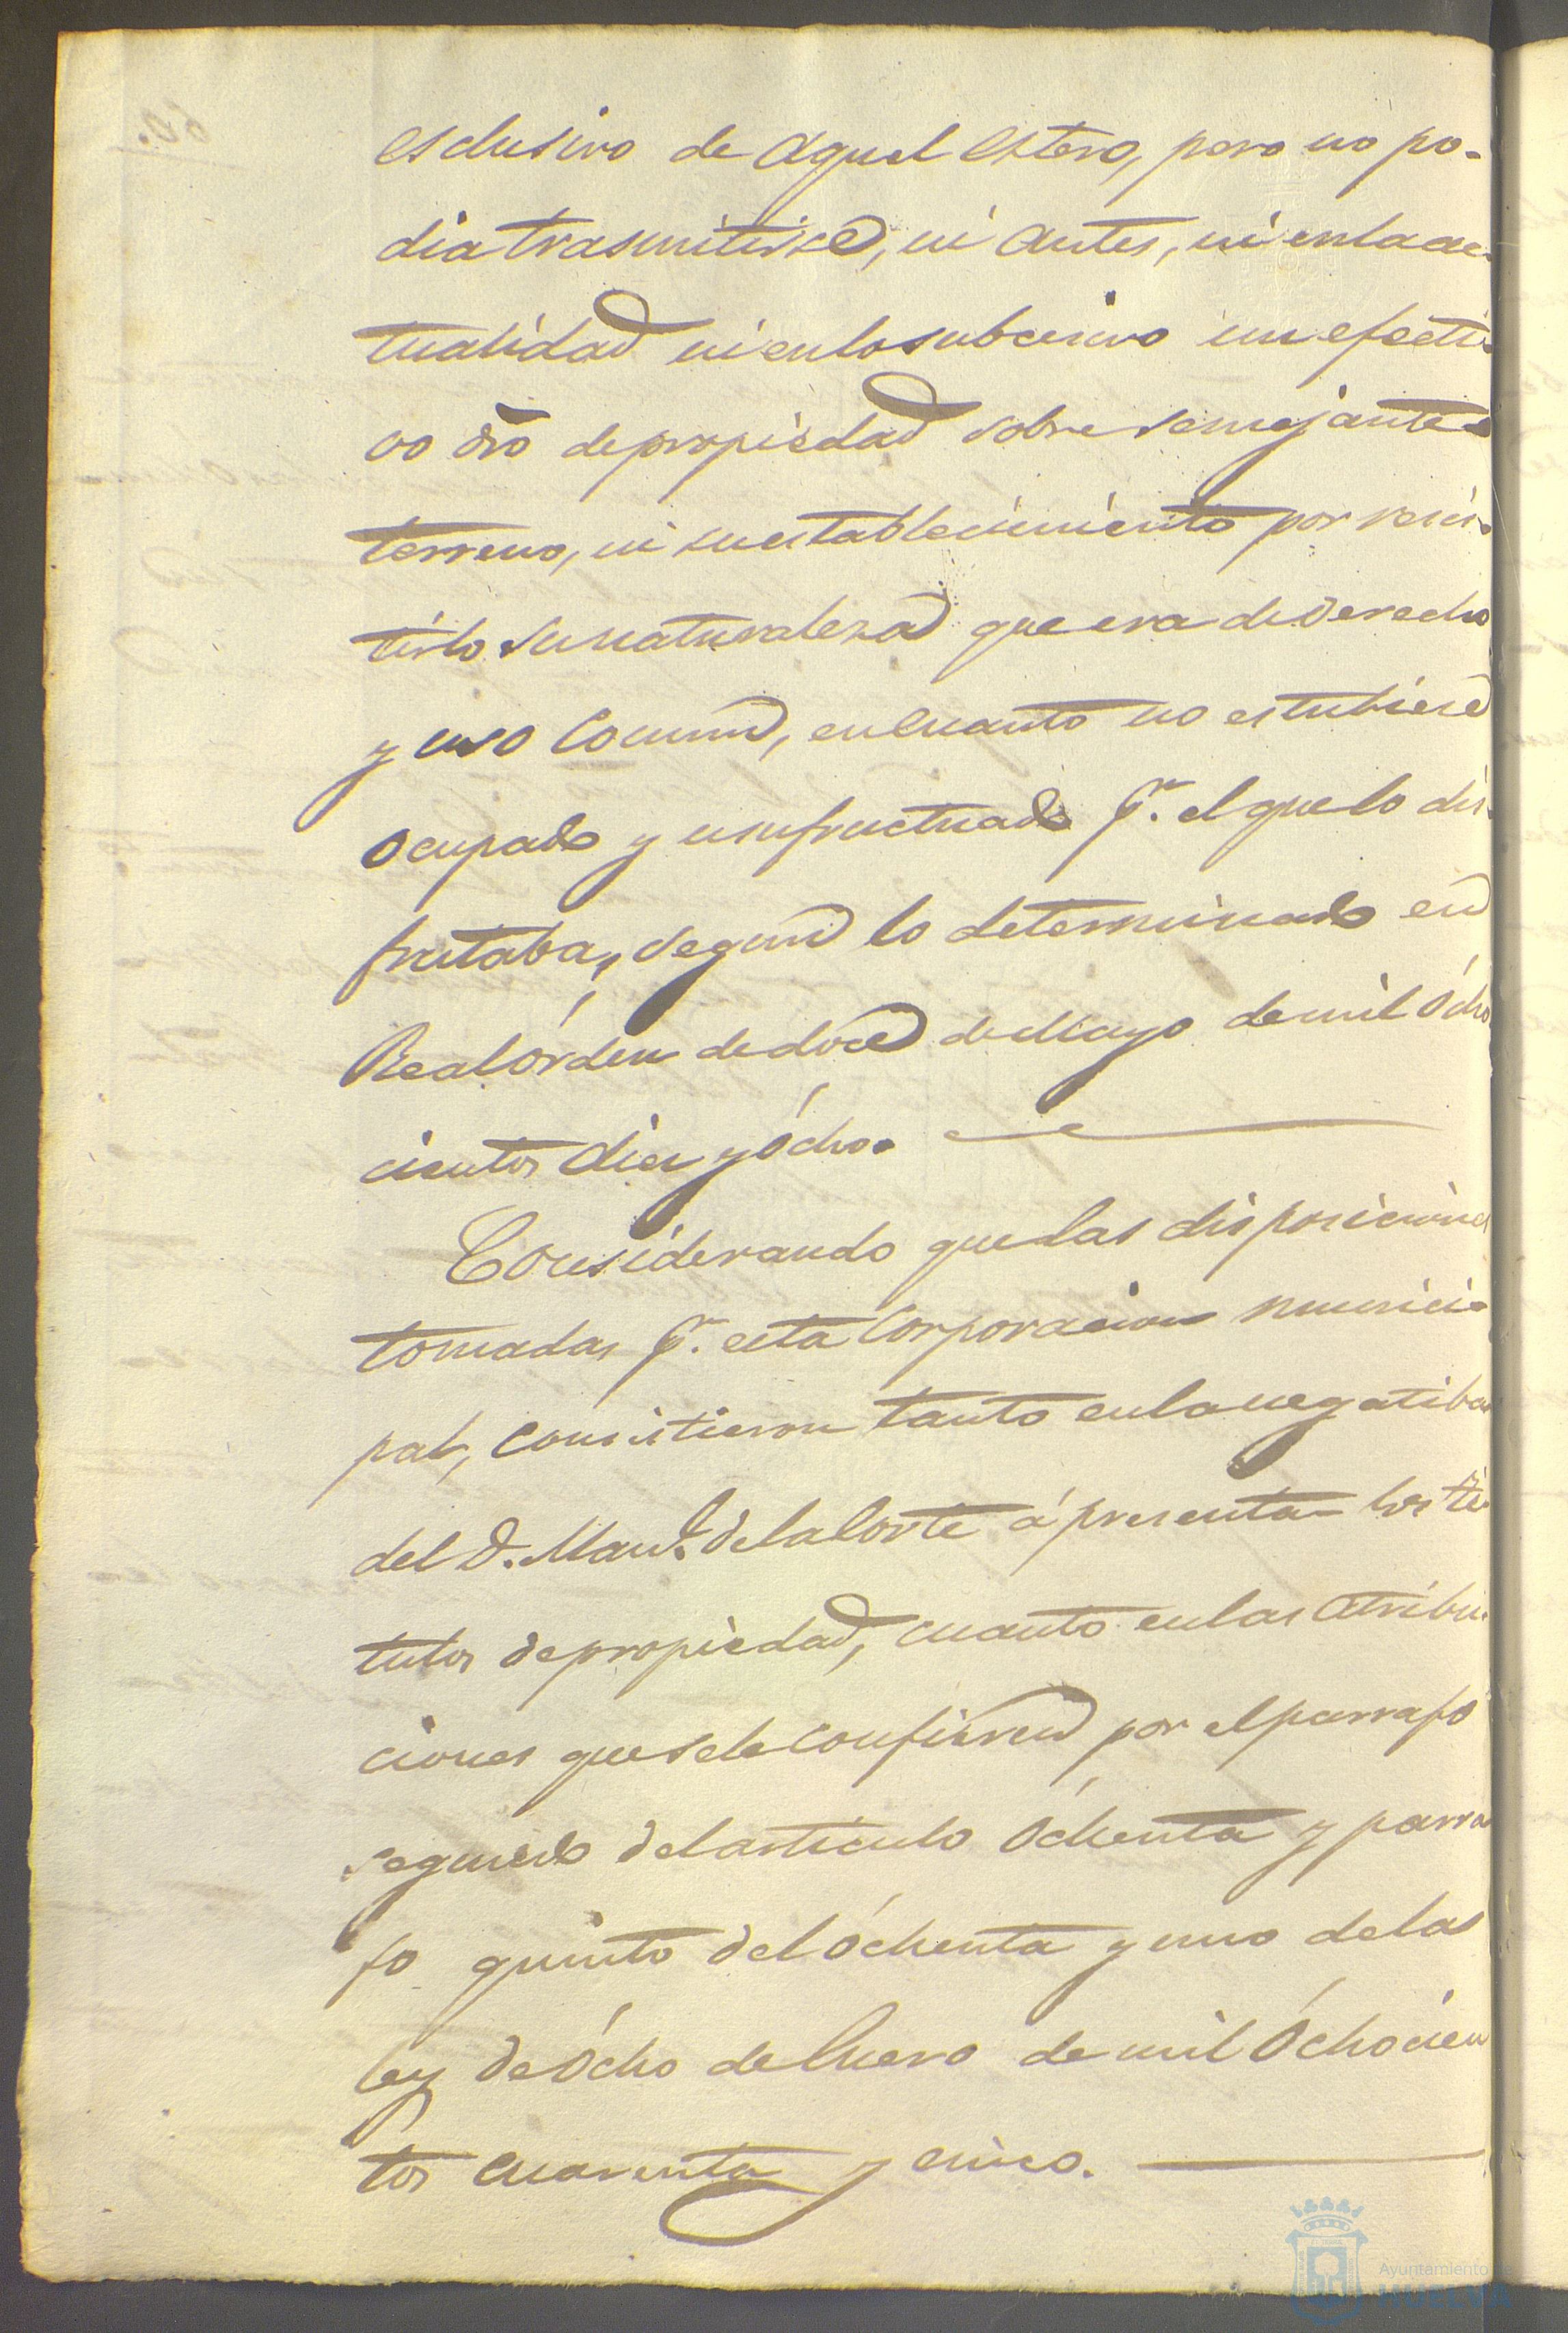 esclusivo de aquel estero, pero no po-
dia trasmitirse, ni antes, ni en la ac-
tualidad ni en lo subcesivo un efecti-
vo dro de propiedad sobre semejante
terreno, ni su establecimiento por resis-
tirlo su naturaleza que era de derecho
y uso comun, en cuanto no estubiese
ocupado y usufructuado pr. el que lo dis-
frutaba, segun lo determinado en
Real órden de doce de Mayo de mil ócho
cientos diez y ócho.
Considerando que las disposiciones
tomadas pr. esta Corporacion munici-
pal, consistieron tanto en la negatiba
del D. Manl. de la Corte á presentar los tí-
tulos de propiedad, cuanto en las atribu-
ciones que se le confieren por el parrafo
segundo del articulo óchenta y parra-
fo quinto del óchenta y uno de la
ley de ócho de Enero de mil óchocien
tos cuarenta y cinco.
Ayuntamiento de
HUELVA